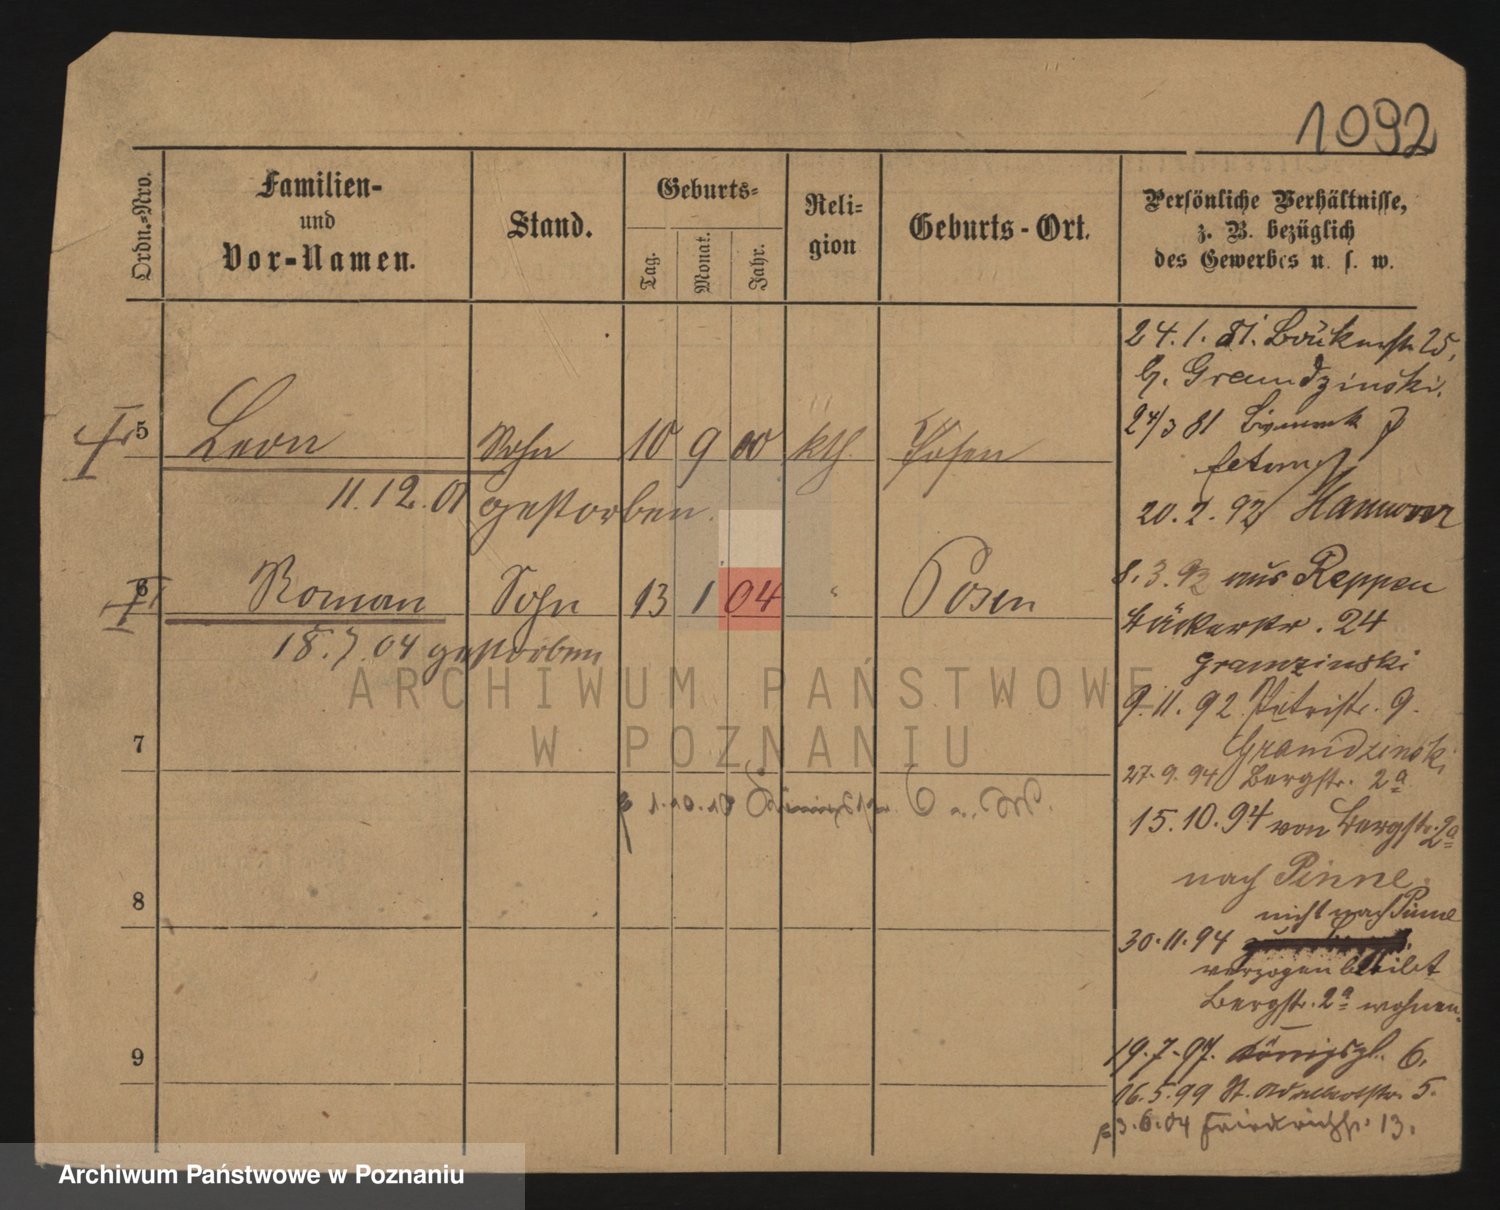 1092
Ordn.-Nro.
Familien-
und
Vor-Namen.
Stand.
Geburts-
Tag.
Monat.
Jahr.
Reli-
gion
Geburts-Ort.
Persönliche Verhältnisse,
z. B. bezüglich
des Gewerbes u. s. w.
5 Leon Sohn 10 9 00 kth. Posen
11.12.01 gestorben.
6 Roman Sohn 13 1 04 " Posen
18.7.04 gestorben
7
8
9
24.1.81. 25,
b. Gramdzinski.
24/3 81
20.2.92 Hannover
8.3.92 aus Reppen
Bäckerstr. 24
Gramzinski
9.11.92 Petristr. 9.
Gramdzinski
27.9.94 Bergstr. 2a
15.10.94 von Bergstr. 2a
nach Pinne
nicht nach Pinne
30.11.94
verzogen bleibt
Bergstr. 2a wohnen.
19.7.97. Königspl. 6.
16.5.99 St. Adalbertstr. 5.
3.6.04 Friedrichstr. 13.
ARCHIWUM PAŃSTWOWE
W POZNANIU
Archiwum Państwowe w Poznaniu